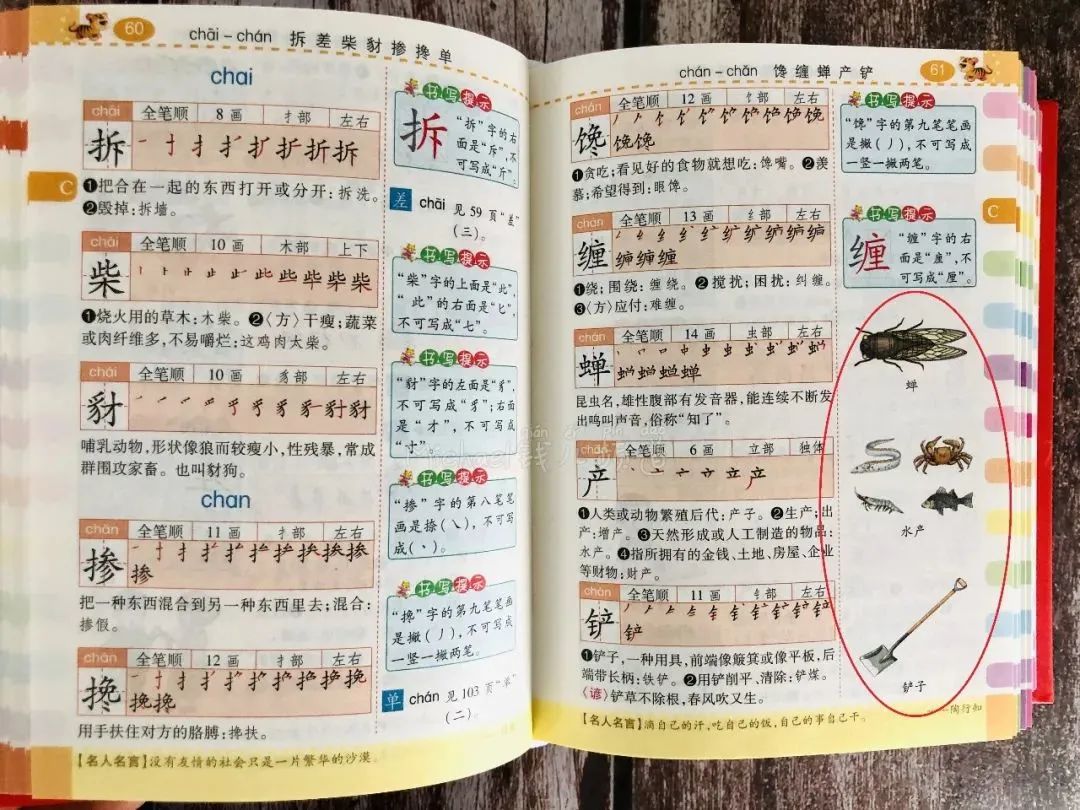 60
chāi – chán 拆差柴豺掺搀单
chai
chāi 全笔顺 8 画 扌部 左右
拆
❶把合在一起的东西打开或分开:拆洗。
❷毁掉:拆墙。
C
chái 全笔顺 10 画 木部 上下
柴
❶烧火用的草木:木柴。❷〈方〉干瘦;蔬菜
或肉纤维多,不易嚼烂:这鸡肉太柴。
chái 全笔顺 10 画 豸部 左右
豺
哺乳动物,形状像狼而较瘦小,性残暴,常成
群围攻家畜。也叫豺狗。
chan
chān 全笔顺 11 画 扌部 左右
掺
把一种东西混合到另一种东西里去;混合:
掺假。
chān 全笔顺 12 画 扌部 左右
搀
用手扶住对方的胳膊:搀扶。
书写提示
拆
“拆”字的右
面是“斥”,不
可写成“斤”。
差 chāi 见 59 页“差”
(三)。
书写提示
“柴”字的上面是“此”,
“此”的右面是“匕”,
不可写成“七”。
书写提示
“豺”字的左面是“豸”,
面是“才”,不可写成
“寸”。
书写提示
“掺”字的第八笔笔
画是捺(㇏),不可写
成(丶)。
书写提示
“搀”字的第九笔笔画
是撇(丿),不可写成
一竖一撇两笔。
单 chán 见 103 页“单”
(二)。
【名人名言】没有友情的社会只是一片繁华的沙漠。
chán – chǎn 馋缠蝉产铲
61
chán 全笔顺 12 画 饣部 左右
馋
❶贪吃;看见好的食物就想吃:馋嘴。❷羡
慕;希望得到:眼馋。
chán 全笔顺 13 画 纟部 左右
缠
❶绕;围绕:缠绕。❷搅扰;困扰:纠缠。
❸〈方〉应付:难缠。
chán 全笔顺 14 画 虫部 左右
蝉
昆虫名,雄性腹部有发音器,能连续不断发
出鸣叫声音,俗称“知了”。
chǎn 全笔顺 6 画 立部 独体
产
❶人类或动物繁殖后代:产子。❷生产;出
产:增产。❸天然形成或人工制造的物品:
水产。❹指所拥有的金钱、土地、房屋、企业
等财物:财产。
chǎn 全笔顺 11 画 钅部 左右
铲
❶铲子,一种用具,前端像簸箕或像平板,后
端带长柄:铁铲。❷用铲削平、清除:铲煤。
〈谚〉铲草不除根,春风吹又生。
书写提示
“馋”字的第九笔笔画
是撇(丿),不可写成
一竖一撇两笔。
C
书写提示
缠
“缠”字的右
面是“㕓”,不
可写成“厘”。
蝉
水产
铲子
【名人名言】滴自己的汗,吃自己的饭,自己的事自己干。
——陶行知